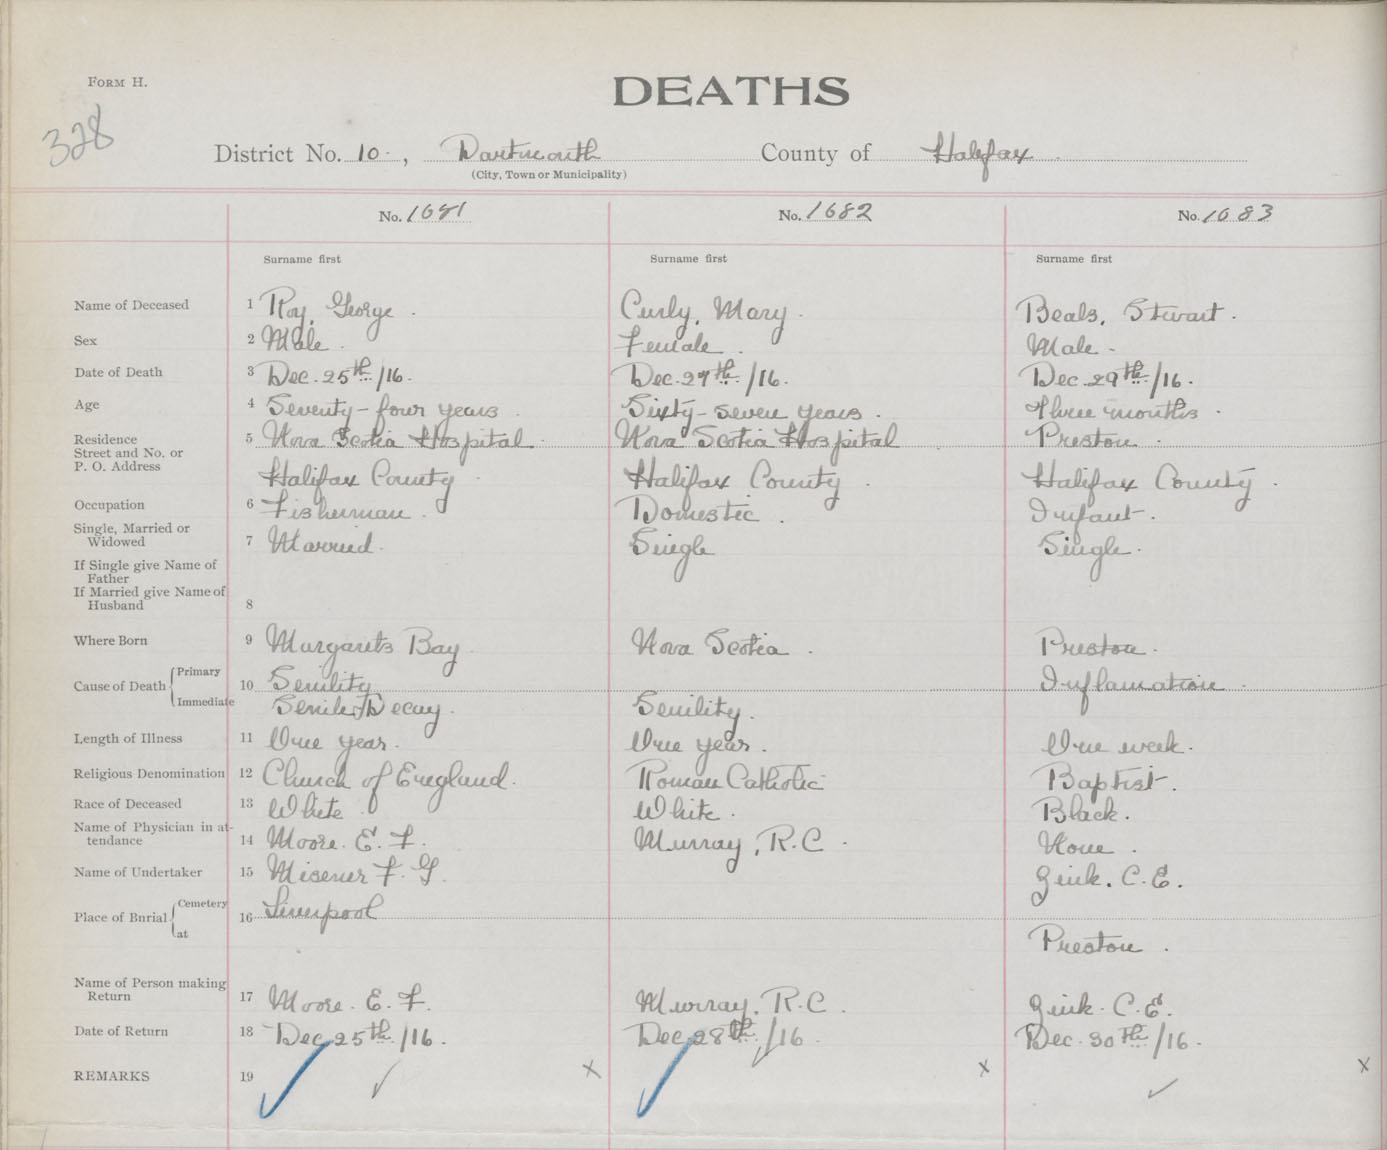 FORM H.
DEATHS
328
District No. 10, Dartmouth County of Halifax
(City, Town or Municipality)
No. 1681 No. 1682 No. 1683
Surname first Surname first Surname first
Name of Deceased 1 Roy, George. Curly, Mary. Beals, Stewart.
Sex 2 Male. Female. Male.
Date of Death 3 Dec. 25th/16. Dec. 27th/16. Dec. 29th/16.
Age 4 Seventy-four years. Sixty-seven years. Three months.
Residence 5 Nova Scotia Hospital. Nova Scotia Hospital Preston.
Street and No. or
P. O. Address Halifax County. Halifax County. Halifax County.
Occupation 6 Fisherman. Domestic. Infant.
Single, Married or
Widowed 7 Married. Single Single.
If Single give Name of
Father
If Married give Name of
Husband 8
Where Born 9 Margarets Bay Nova Scotia. Preston.
Cause of Death Primary 10 Senility Inflamation.
Immediate Senile Decay. Senility.
Length of Illness 11 One year. One year. One week.
Religious Denomination 12 Church of England. Roman Catholic Baptist.
Race of Deceased 13 White. White. Black.
Name of Physician in at-
tendance 14 Moore. E. F. Murray, R.C. None.
Name of Undertaker 15 Misener F. G. Zink. C.E.
Place of Burial Cemetery 16 Liverpool
at Preston.
Name of Person making
Return 17 Moore. E. F. Murray, R.C. Zink. C.E.
Date of Return 18 Dec. 25th/16. Dec. 28th/16. Dec. 30th/16.
REMARKS 19 x x x